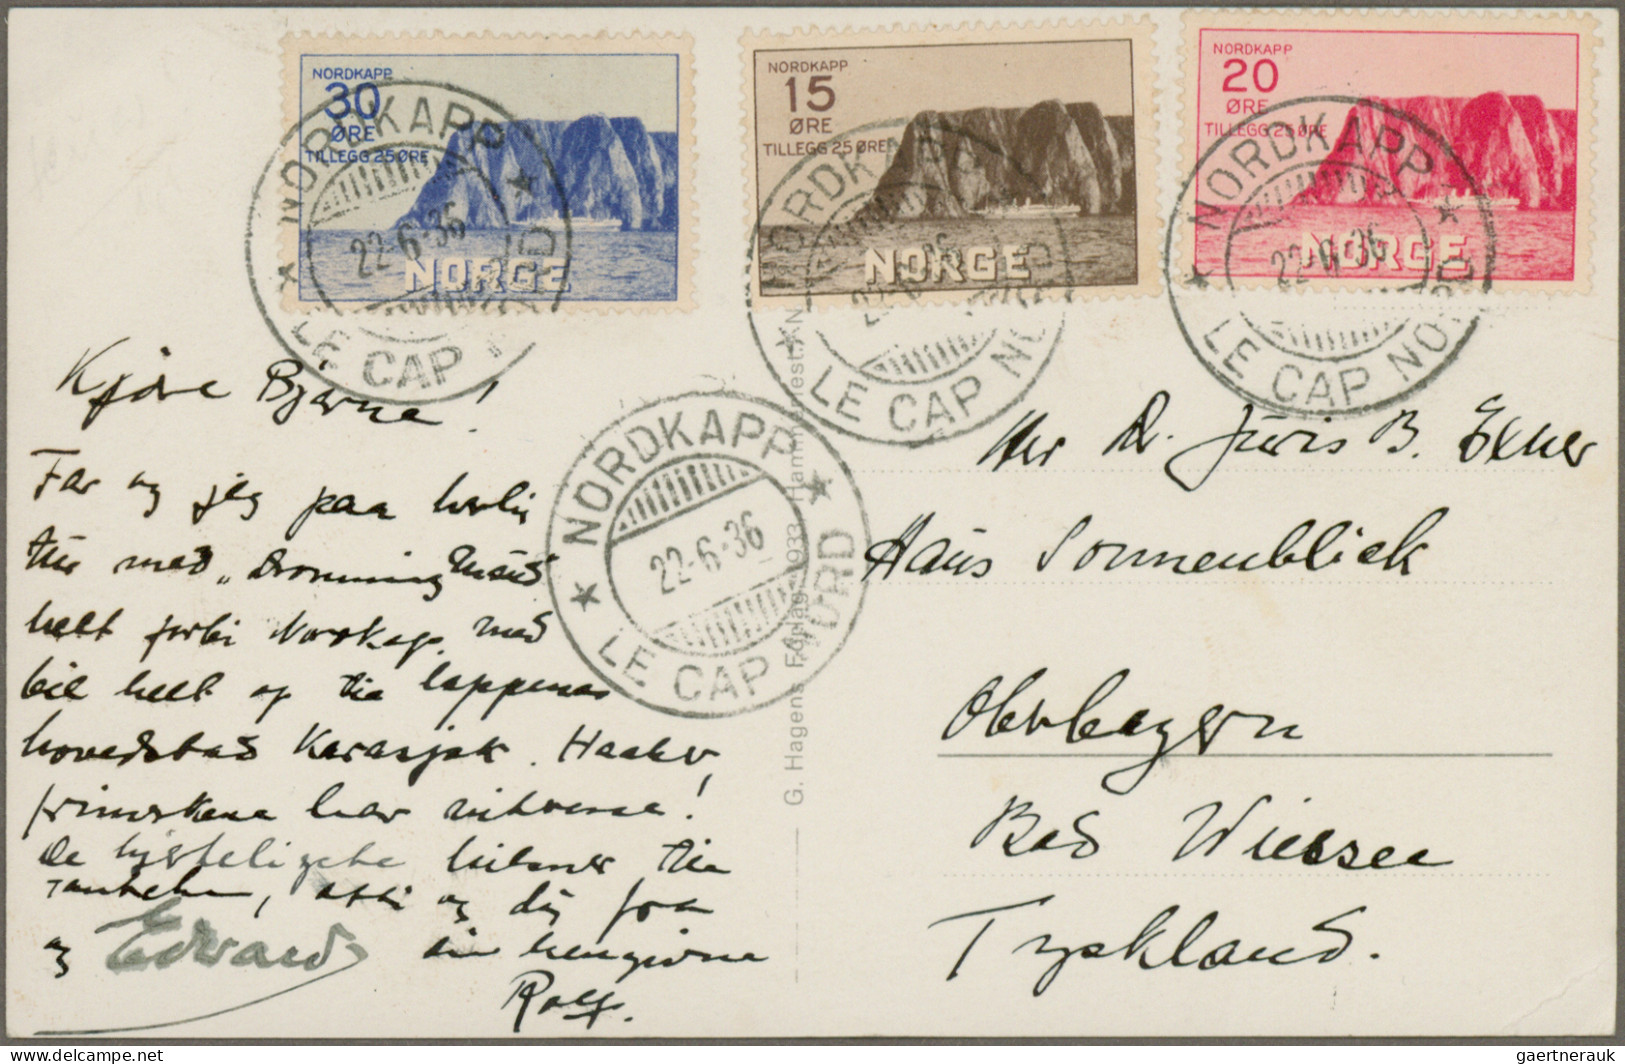 NORDKAPP
30
ØRE
TILLEGG 25 ØRE
NORGE
NORDKAPP
15
ØRE
TILLEGG 25 ØRE
NORGE
NORDKAPP
20
ØRE
TILLEGG 25 ØRE
NORGE
NORDKAPP
22-6-36
LE CAP NORD
NORDKAPP
22-6-36
LE CAP NORD
NORDKAPP
22-6-36
LE CAP NORD
NORDKAPP
22-6-36
LE CAP NORD
Kjære Bjarne!
Far og jeg paa herlig
tur med „Dronning Maud
helt forbi Nordkap, med
bil helt op til lappenes
hovedstad Karasjok. Haaber
frimerkene har interesse!
De hjerteligste hilsner til
tanteken, og dig fra
din hengivne
Rolf.
og Edward
G. Hagens Forlag 1933
Herr Dr. juris B. Exner
Haus Sonnenblick
Oberbayern
Bad Wiessee
Tyskland.
delcampe.net
gaertnerauk